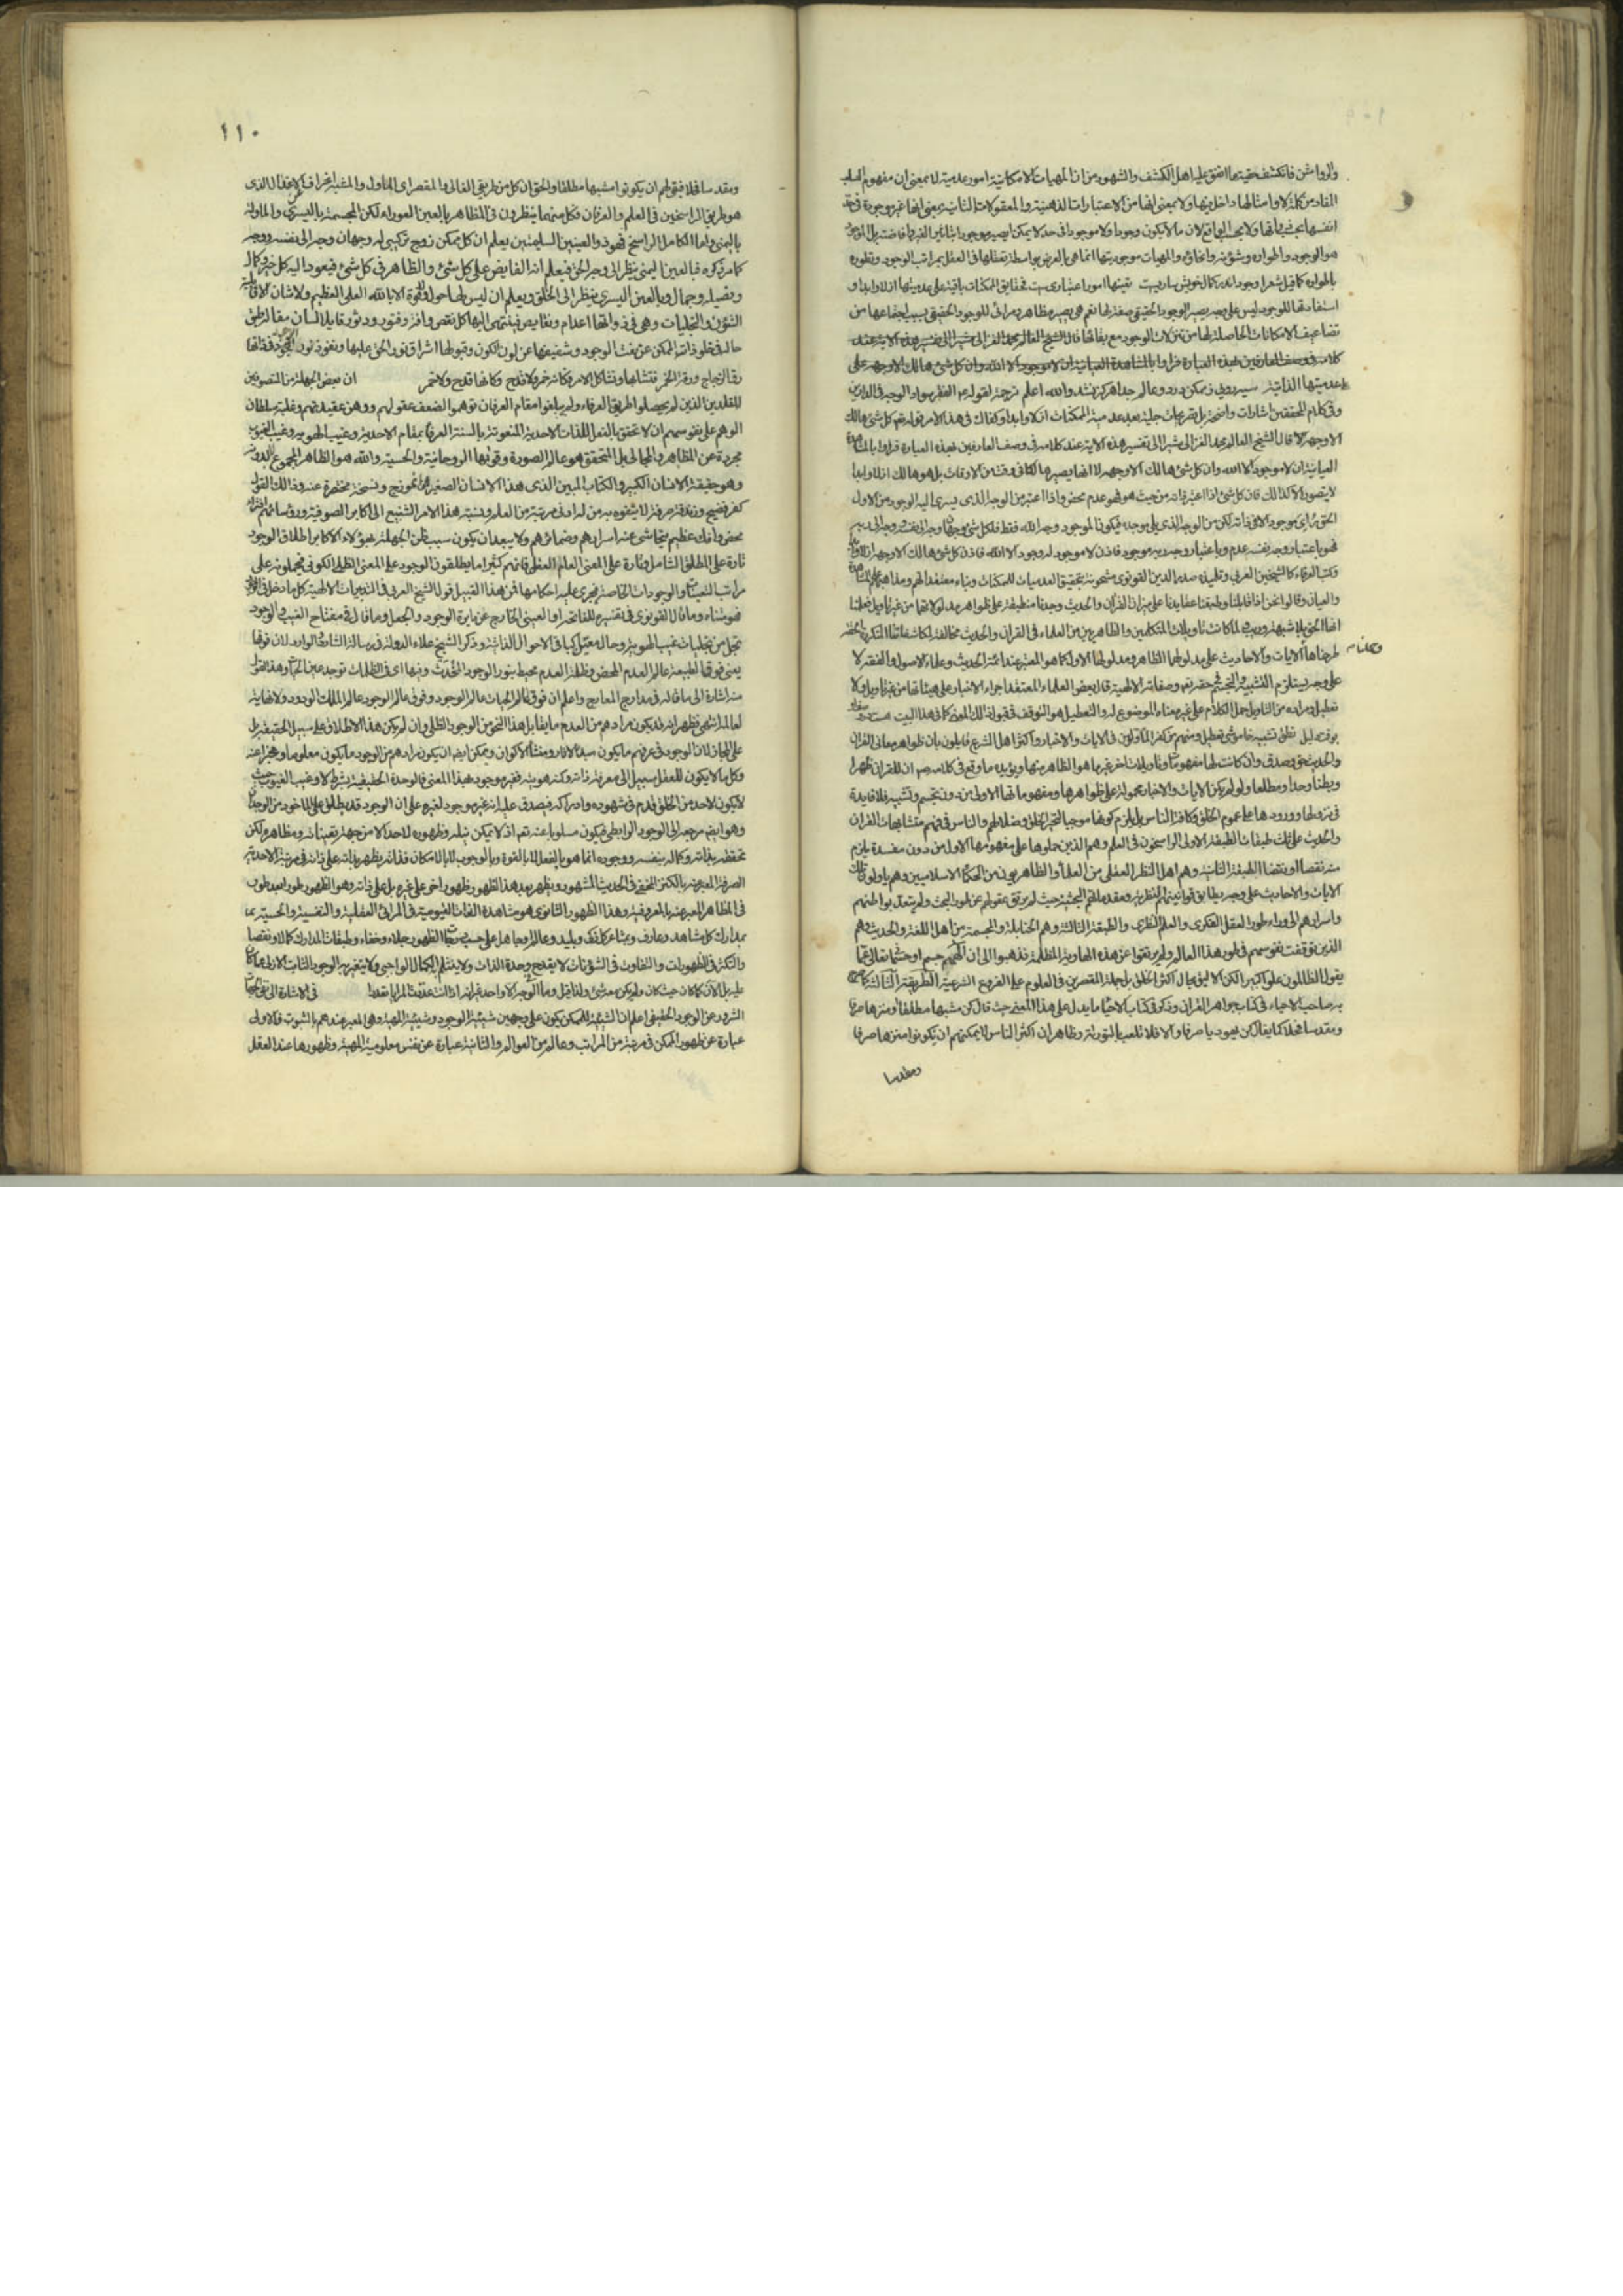 فانكشف حقيقة ما اتفق عليه اهل الكشف والشهود من ان المهيات الامكانية امور عدمية لا بمعنى ان مفهوم السلب
المفاد من كلمة لا وامثالها داخل فيها ولا بمعنى انها من الاعتبارات الذهنية والمعقولات الثانية بل بمعنى انها غير موجودة لا فى حد
انفسها بحسب ذواتها ولا بحسب الواقع لان ما لا يكون وجودا ولا موجودا فى حد لا يمكن ان يصير موجودا بتاثير الغير وافاضته بل الموجود
هو الوجود واطواره وشؤونه وانحاؤه والمهيات موجوديتها انما هى بالعرض بواسطة تعلقها فى العقل بمراتب الوجود وتطوره
باطواره كما قيل شعر وجود اندر كمال خويش ساريست تعينها امور اعتباريست فحقايق الممكنات باقية على عدميتها ازلا وابدا و
استفادتها للوجود ليس على وجه يصير الوجود الحقيقى صفة لها نعم هى تصير مظاهر ومرائى للوجود الحقيقى بسبب اجتماعها من
تضاعيف الامكانات الحاصلة لها من تنزلات الوجود مع بقائها قال الشيخ العالم محمد الغزالى مشيرا الى تفسير هذه الاية عند
كلامه فى وصف العارفين بهذه العبارة فراوا بالمشاهدة العيانية ان لا موجود الا الله وان كل شئ هالك الا وجهه على
عدميتها الذاتية سيه رويى ز ممكن در دو عالم جدا هرگز نشد والله اعلم ترجمة لقوله ع الفقر سواد الوجه فى الدارين
وفى كلام المحققين اشارات واضحة بل تصريحات جلية بعدمية الممكنات ازلا وابدا وكفاك فى هذا الامر قوله تع كل شئ هالك
الا وجهه قال الشيخ العالم محمد الغزالى مشيرا الى تفسير هذه الاية عند كلامه فى وصف العارفين بهذه العبارة فراوا بالمشاهدة
العيانية ان لا موجود الا الله وان كل شئ هالك الا وجهه لا انه يصير هالكا فى وقت من الاوقات بل هو هالك ازلا وابدا
لا يتصور الا كذلك فان كل شئ اذا اعتبر ذاته من حيث هو فهو عدم محض واذا اعتبر من الوجه الذى يسرى اليه الوجود من الاول
الحق راى موجودا لا فى ذاته لكن من الوجه الذى يلى موجده فيكون الموجود وجه الله فقط فلكل شئ وجهان وجه الى نفسه ووجه الى ربه
فهو باعتبار وجه نفسه عدم وباعتبار وجه ربه موجود فاذن لا موجود الا الله فاذن كل شئ هالك الا وجهه ازلا وابدا
وكتب العرفاء كالشيخين العربى وتلميذه صدر الدين القونوى مشحونة بتحقيق العدميات للممكنات وبناء معتقداتهم ومذاهبهم على المشاهدة
والعيان وقالوا نحن اذا قابلنا وطبقنا عقايدنا على ميزان القران والحديث وجدناها منطبقة على ظواهر مدلولاتهما من غير تاويل فعلمنا
انها الحق بلا شبهة وريب ولما كانت تاويلات المتكلمين والظاهريين من العلماء فى القران والحديث مخالفة لمكاشفاتنا المتكررة الحقة
طرحناها الايات والاحاديث على مدلولها الظاهر ومدلولها الاول كما هو المعتبر عند ائمة الحديث وعلماء الاصول والفقه لا
على وجه يستلزم التشبيه والتجسم فى حقه تع وصفاته الالهية قال بعض العلماء المعتقد اجراء الاخبار على هيئاتها من غير تاويل ولا
تعطيل ومراده من التاويل حمل الكلام على غير معناه الموضوع له والتعطيل هو التوقف فى قبول ذلك المعنى كما فى هذا البيت هست در وصف او
بوقت دليل نطق تشبيه خامشى تعطيل ومنهم من كفر المأولين فى الايات والاخبار واكثر اهل الشرع قايلون بان ظواهر معانى القران
والحديث حق وصدق وان كانت لها مفهومات وتاويلات اخر غير ما هو الظاهر منها ويؤيده ما وقع فى كلامه ص ان للقران ظهرا
وبطنا وحدا ومطلعا ولو لم يكن الايات والاخبار محمولة على ظواهرها ومفهوماتها الاولى من دون تجسم وتشبيه فلا فايدة
فى نزولها وورودها على عموم الخلق وكافة الناس بل يلزم كونها موجبا لتحير الخلق وضلالهم والناس فى فهم متشابهات القران
والحديث على ثلث طبقات الطبقة الاولى الراسخون فى العلم وهم الذين حملوها على مفهومها الاول من دون مفسدة يلزم
منه نقصا او نقضا الطبقة الثانية وهم اهل النظر العقلى من العلماء والظاهريون من الحكماء الاسلاميين وهم ياولون تلك
الايات والاحاديث على وجه يطابق قوانينهم النظرية ومقدماتهم البحثية حيث لم يرتق عقولهم عن طور البحث ولم يتعد بواطنهم
واسرارهم الى ما وراء طور العقل الفكرى والعلم النظرى والطبقة الثالثة وهم الحنابلة والمجسمة من اهل اللغة والحديث وهم
الذين توقفت نفوسهم فى طور هذا العالم ولم يرتقوا عن هذه الهاوية المظلمة فذهبوا الى ان الههم جسم او جسمانى تعالى عما
يقول الظالمون علوا كبيرا لكن الاليق بحال اكثر الخلق بل جملة المقصرين فى العلوم على الفروع الشرعية الطريقة الثالثة كما صرح
به صاحب الاحياء فى كتاب جواهر القران وذكر فى كتاب الاحياء ما يدل على هذا المعنى حيث قال كن مشبها مطلقا او منزها صرفا
ومقدسا فحلا كما يقال كن يهوديا صرفا والا فلا تلعب بالتورية وظاهر ان اكثر الناس لا يمكنهم ان يكونوا منزها صرفا
ومقدسا
١١٠
ومقدسا فحلا فبقى لهم ان يكونوا مشبها مطلقا والحق ان كل من طريقى الغالى والمقصر اى المأول والمشبه انحراف عن الاعتدال الذى
هو طريق الراسخين فى العلم والعرفان فكل منهما ينظرون فى المظاهر بالعين العوراء لكن المجسمة باليسرى والماولة
باليمنى واما الكامل الراسخ فهو ذو العينين السليمتين يعلم ان كل ممكن زوج تركيبى له وجهان وجه الى نفسه ووجه
كما مر ذكره فبالعين اليمنى ينظر الى وجه الحق فيعلم انه الفايض على كل شئ والظاهر فى كل شئ فيعود اليه كل خير وكمال
وفضيلة وجمال وبالعين اليسرى ينظر الى الخلق ويعلم ان ليس لها حول ولا قوة الا بالله العلى العظيم ولا شان الا قابلية
الشؤون والتجليات وهى فى ذواتها اعدام ونقايص فينتهى اليها كل نقص وافة وفتور ودثور قايلا لسان مقاله طبق
حاله فى خلو ذات الممكن عن نعت الوجود وشفيفها عن لون الكون وقبولها اشراق نور الحق عليها ونفوذ نور الوجود فى ذاتها
رق الزجاج ورقت الخمر فتشابها وتشاكل الامر فكانه خمر ولا قدح وكانها قدح ولا خمر ان بعض الجهلة من المتصوفين
المقلدين الذين لم يحصلوا طريق العرفاء ولم يبلغوا مقام العرفان توهموا لضعف عقولهم ووهن عقيدتهم وغلبة سلطان
الوهم على نفوسهم ان لا تحقق بالفعل للذات الاحدية المنعوتة بالسنة العرفاء بمقام الاحدية وغيب الهوية وغيب الغيوب
مجردة عن المظاهر والمجالى بل المتحقق هو عالم الصورة وقواها الروحانية والحسية والله هو الظاهر المجموع لا بدونه
وهو حقيقة الانسان الكبير والكتاب المبين الذى هذا الانسان الصغير انموذج ونسخة مختصرة عنه وذلك القول
كفر فضيح وزندقة صرفة لا يتفوه به من له ادنى مرتبة من العلم ونسبة هذا الامر الشنيع الى اكابر الصوفية ورؤسائهم افتراء
محض وافك عظيم يتحاشى عنه اسرارهم وضمائرهم ولا يبعد ان يكون سبب ظن الجهلة بهؤلاء الاكابر اطلاق الوجود
تارة على المطلق الشامل وتارة على المعنى العام العقلى فانهم كثيرا ما يطلقون الوجود على المعنى الظلى الكونى فيحملونه على
مراتب التعينات والوجودات الخاصة فيجرى عليه احكامها فمن هذا القبيل قول الشيخ العربى فى التدبيرات الالهية كل ما دخل فى الوجود
فهو متناه وما قال القونوى فى تفسيره للفاتحة او الغيبى الخارج عن دايرة الوجود والجعل وما قال فى مفتاح الغيب والوجود
تجل من تجليات غيب الهوية وحال معين كباقى الاحوال الذاتية وذكر الشيخ علاء الدولة فى رسالة الشارد والوارد لان فوقها
يعنى فوق الطبيعة عالم العدم المحض وظلمة العدم محيط بنور الوجود المحدث وفيها اى فى الظلمات توجد عين الحياة وهذا القول
منه اشارة الى ما قاله فى مدارج المعارج واعلم ان فوق عالم الحياة عالم الوجود وفوق عالم الوجود عالم الملك الودود ولا نهاية
لعالمه انتهى فظهر انه قد يكون مرادهم من العدم ما يقابل هذا النحو من الوجود الظلى وان لم يكن هذا الاطلاق على سبيل الحقيقة بل
على المجاز لان الوجود فى عرفهم ما يكون مبدأ الاثار ومنشأ الاكوان ويمكن ايضا ان يكون مرادهم من الوجود ما يكون معلوما ومخبرا عنه
وكل ما لا يكون للعقل سبيل الى معرفة ذاته وكنه هويته فغير موجود بهذا المعنى فالوحدة الحقيقية بشرط لا وغيب الغيوب حيث
لا يكون لاحد من الخلق قدم فى شهوده وادراكه فيصدق عليه انه غير موجود لغيره على ان الوجود قد يطلق على الماخوذ من الوجدان
وهو ايضا مرجعه الى الوجود الرابطى فيكون مسلوبا عنه تع اذ لا يمكن نيله وظهوره لاحد الا من جهة تعيناته ومظاهره لكن
تحققه بذاته وكماله بنفسه ووجوده انما هو بالفعل لا بالقوة وبالوجوب لا بالامكان فذاته يظهر بذاته على ذاته فى مرتبة الاحدية
الصرفة المعبر عنه بالكنز المخفى فى الحديث المشهور ويظهر بعد هذا الظهور ظهورا اخر على غيره بل على ذاته وهو الظهور طورا بعد طور
فى المظاهر المعبر عنه بالمعروفية وهذا الظهور الثانوى هو مشاهدة الذات القيومية فى المرائى العقلية والنفسية والحسية بما
بمدارك كل شاهد وعارف وبمشاعر كل ذكى وبليد وعالم وجاهل على حسب درجات الظهور جلاء وخفاء وطبقات المدارك كمالا ونقصا
والتكثر فى الظهورات والتفاوت فى الشؤونات لا يقدح وحدة الذات ولا ينثلم الكمال الواجبى ولا يتغير به الوجود الثابت الازلى عما كان
عليه بل الان كما كان حيث كان ولم يكن معه شئ ولذا قيل وما الوجه الا واحد غير انه اذا انت عددت المرايا تعددا فى الاشارة الى نفى جهات
الشرور عن الوجود الحقيقى اعلم ان الشيئية للممكن يكون على وجهين شيئية الوجود وشيئية المهية وهى المعبر عندهم بالثبوت فالاولى
عبارة عن ظهور الممكن فى مرتبة من المراتب وعالم من العوالم والثانية عبارة عن نفس معلومية المهية وظهورها عند العقل